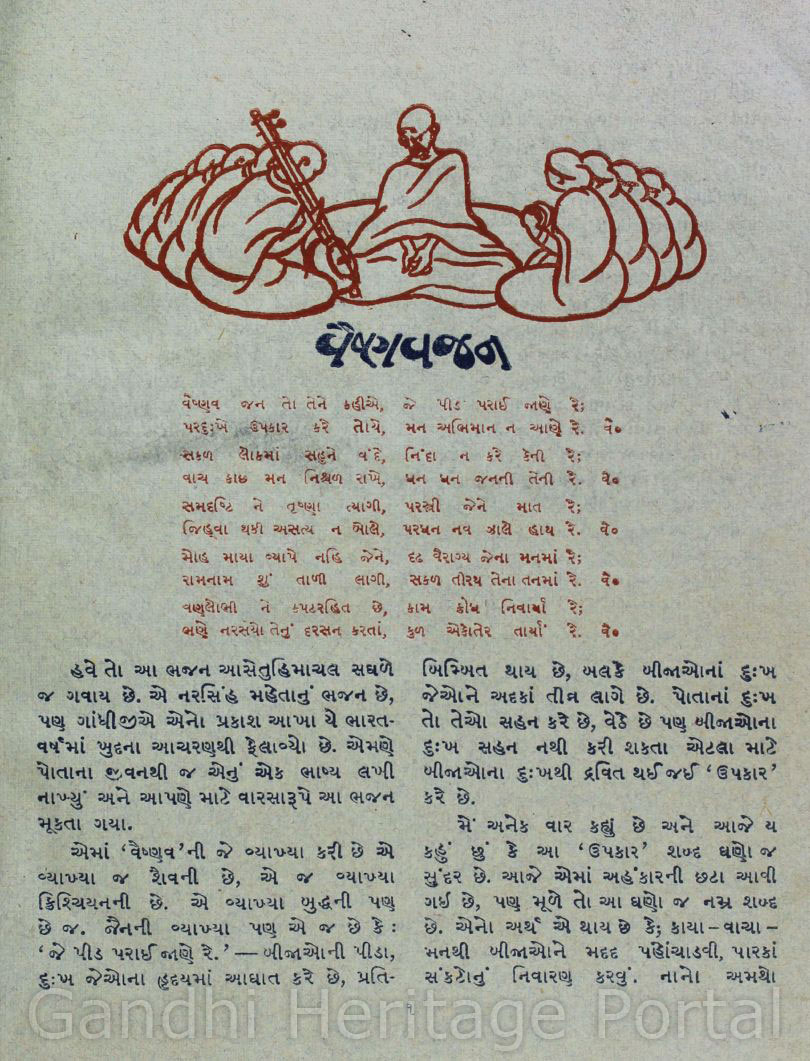 વૈષ્ણવજન
વૈષ્ણવ જન તો તેને કહીએ, જે પીડ પરાઈ જાણે રે;
પરદુઃખે ઉપકાર કરે તોયે, મન અભિમાન ન આણે રે. વૈ૦
સકળ લોકમાં સહુને વંદે, નિંદા ન કરે કેની રે;
વાચ કાછ મન નિશ્ચળ રાખે, ધન ધન જનની તેની રે. વૈ૦
સમદૃષ્ટિ ને તૃષ્ણા ત્યાગી, પરસ્ત્રી જેને માત રે;
જિહ્વા થકી અસત્ય ન બોલે, પરધન નવ ઝાલે હાથ રે. વૈ૦
મોહ માયા વ્યાપે નહિ જેને, દૃઢ વૈરાગ્ય જેના મનમાં રે;
રામનામ શું તાળી લાગી, સકળ તીરથ તેના તનમાં રે. વૈ૦
વણલોભી ને કપટરહિત છે, કામ ક્રોધ નિવાર્યા રે;
ભણે નરસૈંયો તેનું દરસન કરતાં, કુળ એકોતેર તાર્યાં રે. વૈ૦
હવે તો આ ભજન આસેતુહિમાચલ સઘળે
જ ગવાય છે. એ નરસિંહ મહેતાનું ભજન છે,
પણ ગાંધીજીએ એનો પ્રકાશ આખા યે ભારત-
વર્ષમાં ખુદના આચરણથી ફેલાવ્યો છે. એમણે
પોતાના જીવનથી જ એનું એક ભાષ્ય લખી
નાખ્યું અને આપણે માટે વારસારૂપે આ ભજન
મૂકતા ગયા.
એમાં ‘વૈષ્ણવ’ની જે વ્યાખ્યા કરી છે એ
વ્યાખ્યા જ શૈવની છે, એ જ વ્યાખ્યા
ક્રિશ્ચિયનની છે. એ વ્યાખ્યા બુદ્ધની પણ
છે જ. જૈનની વ્યાખ્યા પણ એ જ છે કે:
‘જે પીડ પરાઈ જાણે રે.’ — બીજાઓની પીડા,
દુઃખ જેઓના હૃદયમાં આઘાત કરે છે, પ્રતિ-
બિમ્બિત થાય છે, બલકે બીજાઓનાં દુઃખ
જેઓને અદકાં તીવ્ર લાગે છે. પોતાનાં દુઃખ
તો તેઓ સહન કરે છે, વેઠે છે પણ બીજાઓના
દુઃખ સહન નથી કરી શકતા એટલા માટે
બીજાઓના દુઃખથી દ્રવિત થઈ જઈ ‘ઉપકાર’
કરે છે.
મેં અનેક વાર કહ્યું છે અને આજે ય
કહું છું કે આ ‘ઉપકાર’ શબ્દ ઘણો જ
સુંદર છે. આજે એમાં અહંકારની છટા આવી
ગઈ છે, પણ મૂળે તો આ ઘણો જ નમ્ર શબ્દ
છે. એનો અર્થ એ થાય છે કે; કાયા – વાચા –
મનથી બીજાઓને મદદ પહોંચાડવી, પારકાં
સંકટોનું નિવારણ કરવું. નાનો અમથો
૧
Gandhi Heritage Portal